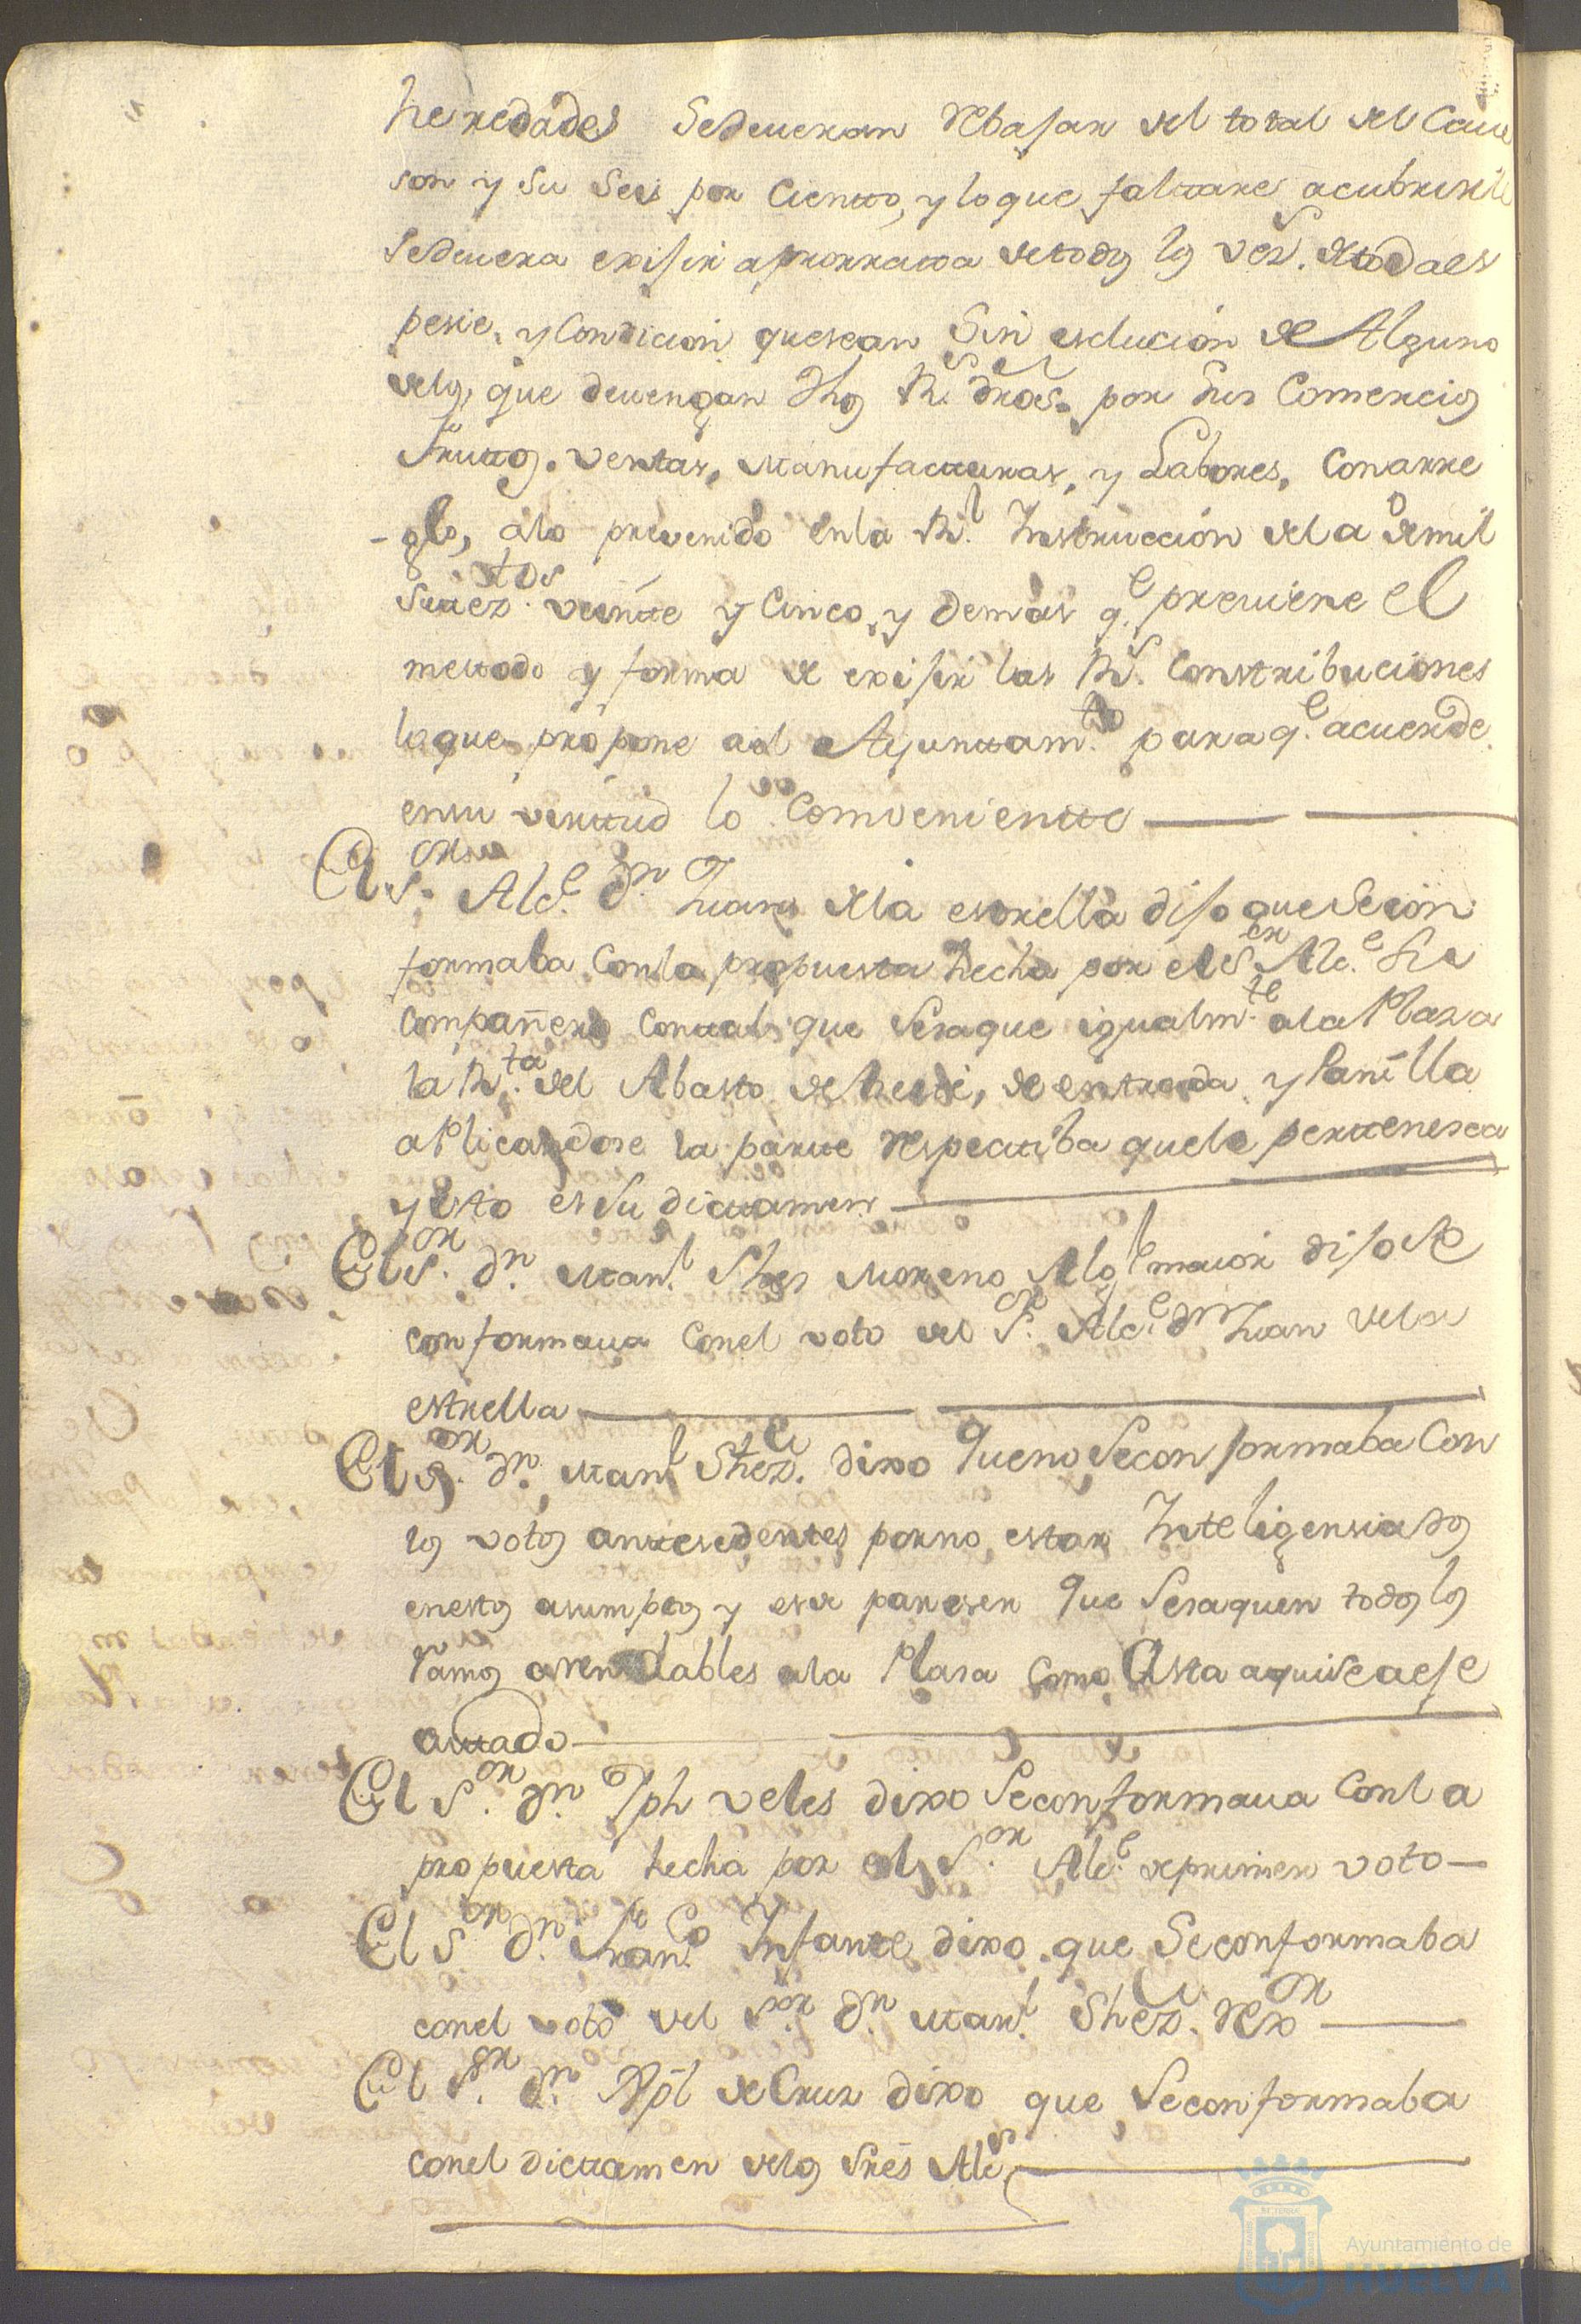 heredades Sedeveran Rebajar del total del Cave
son y su Seis por Ciento, y loque faltare acubrirle
Sedevera exijir aprorrata detodos los vezs. detodaes
pesie, y Condicion quesean Sin esclucion de Alguno
delos, que devengan dhos Rs. dros. por sus Comercios
frutos. ventas, Manufacturas, y Labores, Conarre
-glo, alo prevenido enla Rl. Instruccion dela de mil
Setez.tos veinte y Cinco, y demas q.e previene el
metodo y forma de exijir las Rs. Contribuciones
loque propone ael Ayuntam.to paraq.e acuerde
ensu virtud lo Comveniente
El S.or Alc.e Dn Juan dela estrella dijo queSecon
formaba Conla propuesta hecha por el S.or Alc.e Su
Compañero Contal que Sesaque igualm.te ala Plaza
la R.ta del Abasto de
aplicandose la parte Respectiba quele pertenesca
y esto es Su dictamen
El S.or Dn. Man.l Shes Moreno Alg.l maior dijo Se
conformava Conel voto del S.or Alc.e Dn Juan dela
estrella
El S.or Dn. Man.l Shez. dixo Queno Secon formaba Con
los votos antesedentes porno estar Inteligensiados
enestos asumptos y es de paresen Que Sesaquen todos los
Ramos arendables ala Plasa Como Asta aquiseaefe
ctuado
El S.or Dn. Jph veles dixo Seconformava Conla
propuesta hecha por el S.or Alc.e deprimer voto
El S.or Dn. Fran.co Infante dixo que Seconformaba
conel voto del S.or Dn Man.l Shez. Rex.or
El S.or Dn. Xpl deCruz dixo que Seconformaba
conel dictamen delos Sres Alc.s
Ayuntamiento de
HUELVA